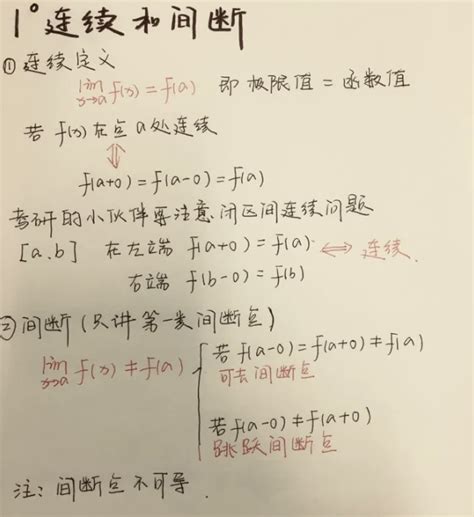 1° 连续和间断
① 连续定义
lim x→a f(x) = f(a) 即 极限值 = 函数值
若 f(x) 在点 a 处连续
⇕
f(a+0) = f(a-0) = f(a)
考研的小伙伴要注意 闭区间连续问题
[a.b] 在左端 f(a+0) = f(a). ⟺ 连续.
右端 f(b-0) = f(b)
② 间断 (只讲 第一类 间断点)
lim x→a f(x) ≠ f(a) { 若 f(a-0) = f(a+0) ≠ f(a)
可去间断点
若 f(a-0) ≠ f(a+0)
跳跃间断点
注: 间断点 不可导.